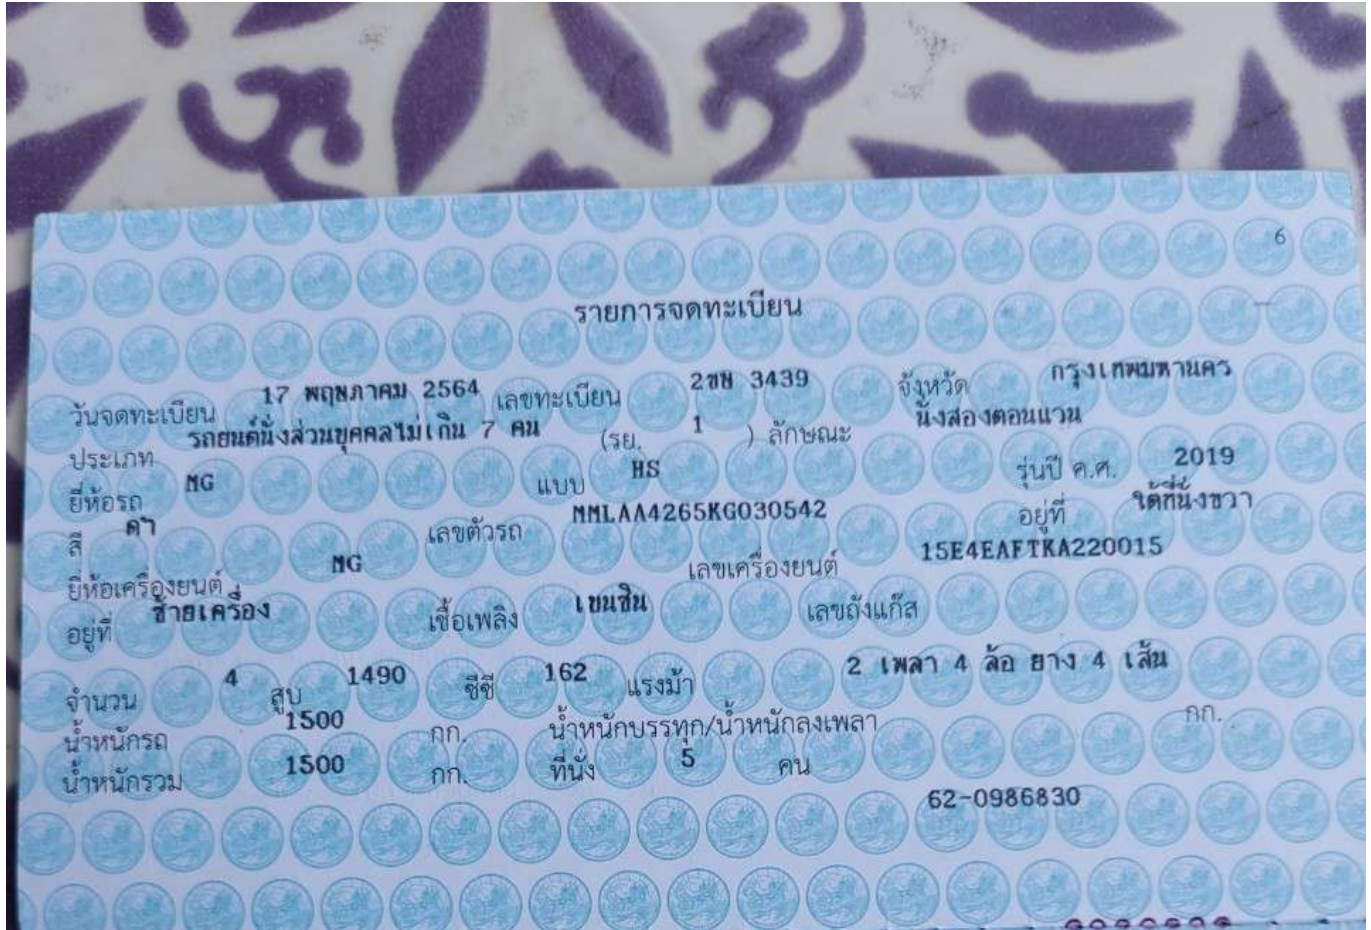 6
รายการจดทะเบียน
วันจดทะเบียน 17 พฤษภาคม 2564 เลขทะเบียน 2ขษ 3439 จังหวัด กรุงเทพมหานคร
ประเภท รถยนต์นั่งส่วนบุคคลไม่เกิน 7 คน (รย. 1 ) ลักษณะ นั่งสองตอนแวน
ยี่ห้อรถ MG แบบ HS รุ่นปี ค.ศ. 2019
สี ดำ เลขตัวรถ MMLAA4265KG030542 อยู่ที่ ใต้ที่นั่งขวา
ยี่ห้อเครื่องยนต์ MG เลขเครื่องยนต์ 15E4EAFTKA220015
อยู่ที่ ซ้ายเครื่อง เชื้อเพลิง เบนซิน เลขถังแก๊ส
จำนวน 4 สูบ 1490 ซีซี 162 แรงม้า 2 เพลา 4 ล้อ ยาง 4 เส้น
น้ำหนักรถ 1500 กก. น้ำหนักบรรทุก/น้ำหนักลงเพลา กก.
น้ำหนักรวม 1500 กก. ที่นั่ง 5 คน
62-0986830